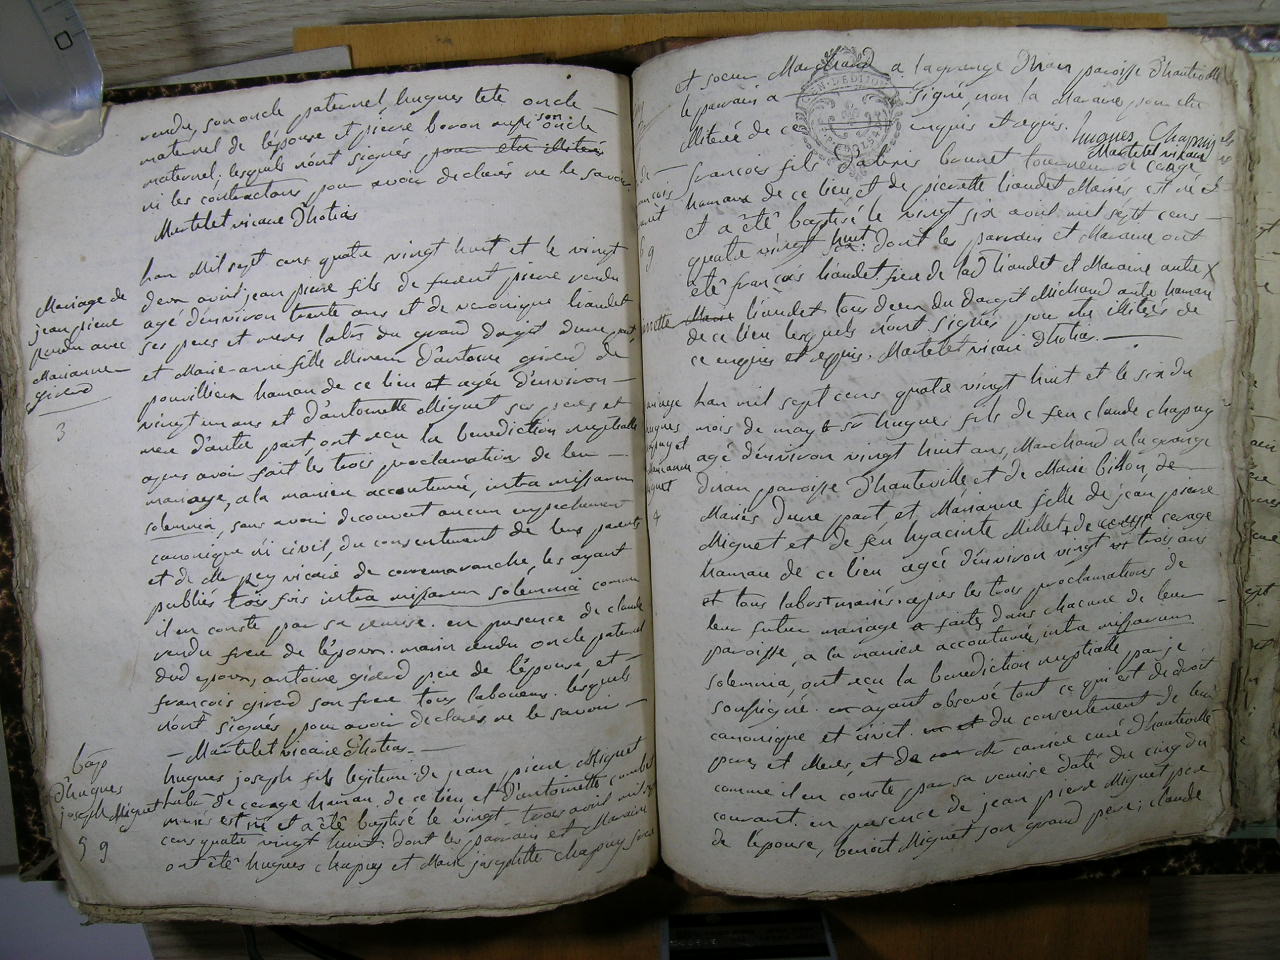 rendu, son oncle paternel, hugues tete oncle
maternel de l'épouse et pierre boron aussi son oncle
maternel; lesquels n'ont signés pour etre illiterés
ni les contractans pour avoir declarés ne le savoir
Martelet vicaire d'hotias
Mariage de
jean pierre
rendu avec
Marianne
girerd
3
lan mil sept cens quatre vingt huit et le vingt
deux avril jean pierre fils de furent pierre rendu
agé d'environ trente ans et de veronique liaudet
ses peres et meres labrs du grand dorget d'une part
et Marie-anne fille Mineure d'antoine girerd de
ponvillieu hameau de ce lieu et agée d'environ
vingt un ans et d'antoinette Miguet ses peres et
mere d'autre part, ont reçu la benediction nuptialle
apres avoir fait les trois proclamation de leur
mariage, a la maniere accoutumée, intra missarum
solemnia, sans avoir decouvert aucun empechement
canonique ni civil, du consentement de leurs parents
et de Mr rey vicaire de corcemavanche, les ayant
publiés trois fois intra missarum solemnia comme
il en conste par sa remise. en presence de claude
rendu frere de l'epoux. marin rendu oncle paternel
dud epoux, antoine girerd pere de l'épouse, et
françois girerd son frere tous laboureurs. lesquels
n'ont signés pour avoir declarés ne le savoir
Martelet vicaire d'hotias.
bap
d'hugues
joseph Miguet
5 9
hugues joseph fils legitime de jean pierre Miguet
habt de cerage hameau, de ce lieu et d'antoinette
mariés est né et a été baptisé le vingt-trois avril mil sept
cens quatre vingt huit: dont les parrain et Marraine
ont été hugues chapuy et Marie josephtte chapuy frere
et soeur Marchand a lagrange d'hain paroisse d'hauteville
le parrain a signé, non la Maraine pour etre
illiterée de ce enquis et requis. hugues Chapuy
Martelet vicaire
françois fils d'abris bonnet tourneur de cerage
hameau de ce lieu et de pierrette liaudet Mariés est né et
et a été baptisé le vingt six avril mil sept cens
quatre vingt huit: dont les parrain et Maraine ont
été françois liaudet frere de lad liaudet et Maraine autre X
Marie liaudet tous deux du dorget Michaud autre hameau
de ce lieu lesquels n'ont signés pour etre illiterés de
ce enquis et requis. Martelet vicaire d'hotias.
4
lan mil sept cens quatre vingt huit et le six du
mois de may sr hugues fils de feu claude chapuy
agé d'environ vingt huit ans, Marchand a la grange
paroisse d'hauteville et de Marie billon de
Mariés d'une part et Marianne fille de jean pierre
Miguet et de feu hyacinte Millet de cerage
hameau de ce lieu agée d'environ vingt trois ans
et tous labost mariés. apres les trois proclamations de
leur futur mariage a faites dans chacune de leur
paroisse, a la maniere accoutumée, intra missarum
solemnia, ont reçu la benediction nuptialle par je
soussigné. ayant observé tout ce qui est de droit
canonique et civil. du consentement de leurs
peres et Meres, et de Mr curé d'hauteville
comme il en conste par sa remise daté du cinq du
courant. en presence de jean pierre Miguet pere
de l'épouse, benoit Miguet son grand pere; claude